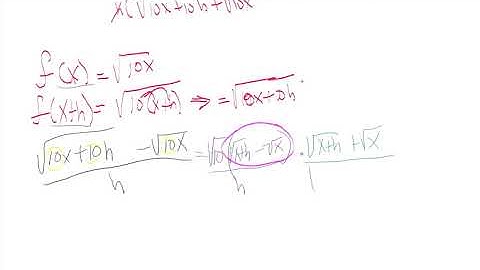 x(√10x+10h+√10x
f(x) = √10x
f(x+h) = √10(x+h) ⇒ = √10x+10h
√10x+10h - √10x = √10(√x+h - √x) · √x+h + √x
h h 1